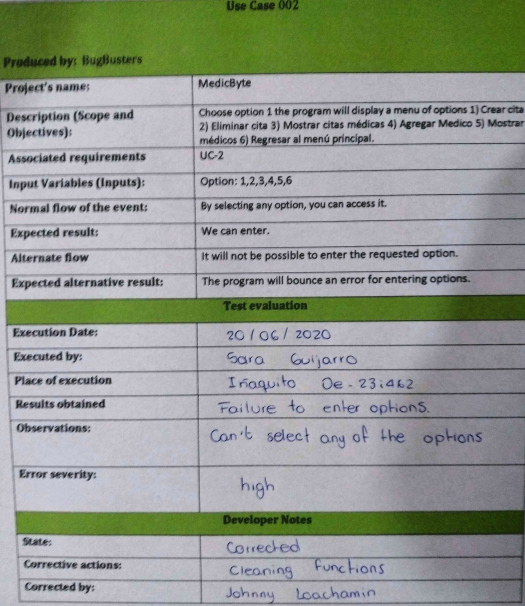 Use Case 002
Produced by: BugBusters
Project's name: MedicByte
Description (Scope and Objectives): Choose option 1 the program will display a menu of options 1) Crear cita
2) Eliminar cita 3) Mostrar citas médicas 4) Agregar Medico 5) Mostrar
médicos 6) Regresar al menú principal.
Associated requirements UC-2
Input Variables (Inputs): Option: 1,2,3,4,5,6
Normal flow of the event: By selecting any option, you can access it.
Expected result: We can enter.
Alternate flow It will not be possible to enter the requested option.
Expected alternative result: The program will bounce an error for entering options.
Test evaluation
Execution Date: 20/06/2020
Executed by: Sara Guijarro
Place of execution Iñaquito Oe-23:462
Results obtained Failure to enter options.
Observations: Can't select any of the options
Error severity: high
Developer Notes
State: Corrected
Corrective actions: Cleaning functions
Corrected by: Johnny Loachamin